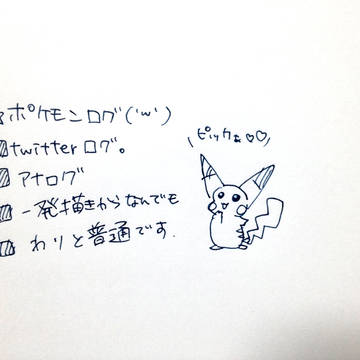 ポケモンログ('ω')
twitterログ。
アナログ
一発描きからなんでも
わりと普通です.
\ピックぁ♡♡/